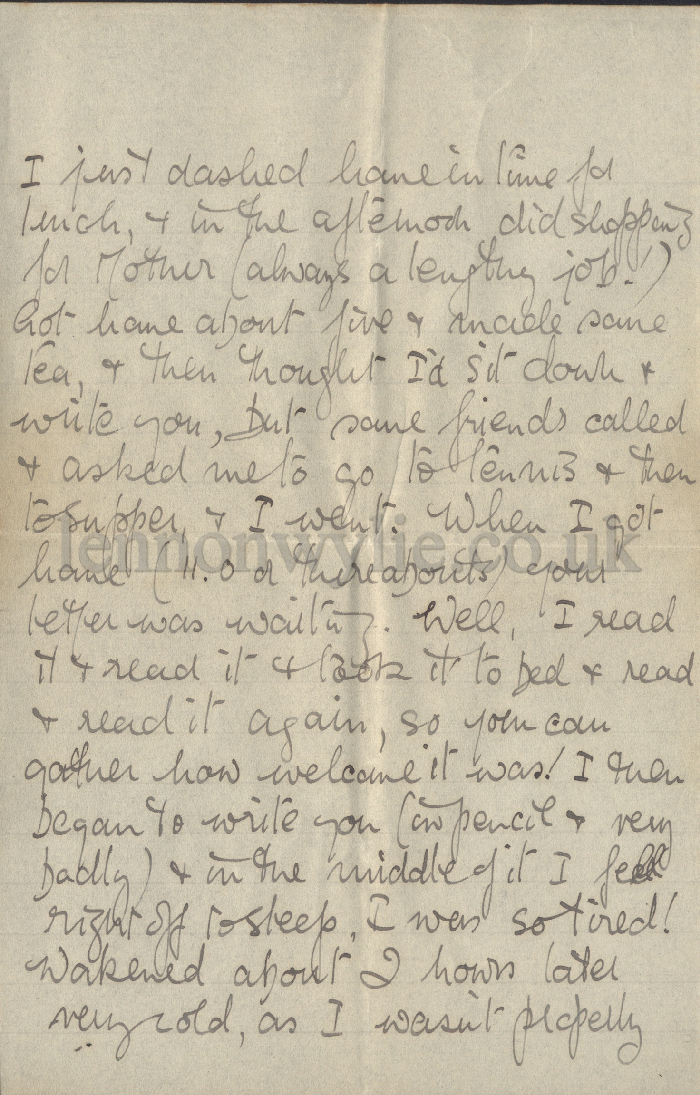 I just dashed home in time for
lunch, & in the afternoon did shopping
for Mother (always a lengthy job!)
Got home about five & made some
tea, & then thought I'd sit down &
write you, but some friends called
& asked me to go to tennis & then
to supper, & I went. When I got
lennonwylie.co.uk
home (11.0 or thereabouts) your
letter was waiting. Well, I read
it & read it & took it to bed & read
& read it again, so you can
gather how welcome it was! I then
began to write you (in pencil & very
badly) & in the middle of it I fell
right off to sleep, I was so tired!
Wakened about 2 hours later
very cold, as I wasn't properly